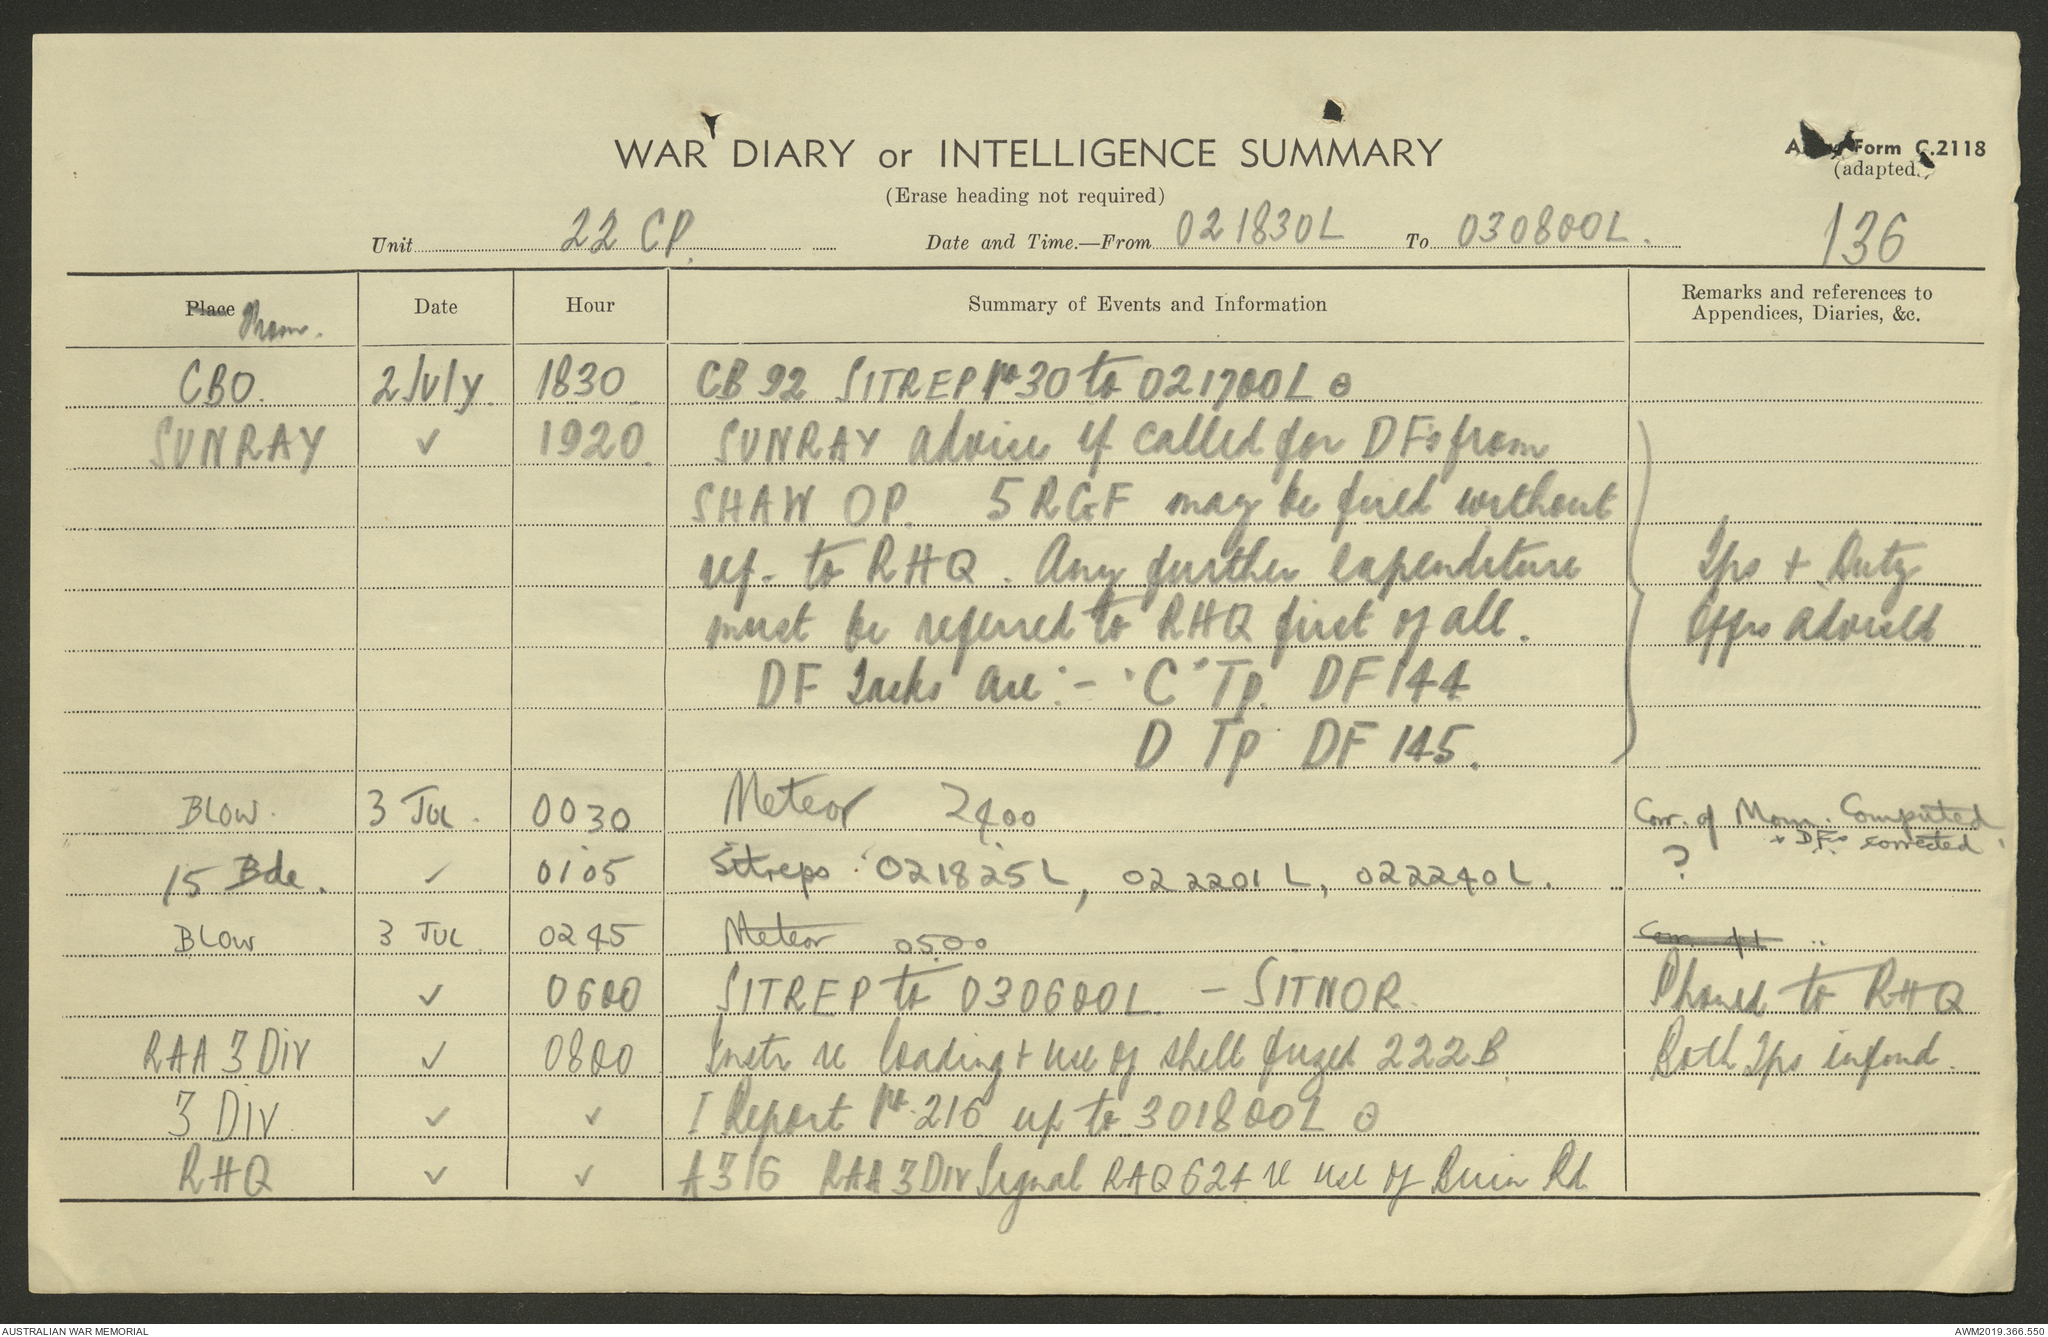 WAR DIARY or INTELLIGENCE SUMMARY
Army Form C.2118
(adapted.)
(Erase heading not required)
136
Unit 22 CP. Date and Time.—From 021830L To 030800L.
Place From. Date Hour Summary of Events and Information Remarks and references to
Appendices, Diaries, &c.
CBO. 2 July. 1830. CB 92 SITREP No 30 to 021700L
SUNRAY ✓ 1920. SUNRAY advises if called for DFs from
SHAW OP. 5 RGF may be fired without
ref. to RHQ. Any further expenditure Tps + Duty
must be referred to RHQ first of all. Offrs advised
DF Tasks are :- 'C' Tp. DF 144
D Tp DF 145.
BLOW. 3 JUL. 0030 Meteor 2400 Corr. of Mom. Computed
+ DFs corrected.
15 Bde. ✓ 0105 Sitreps : 021825L, 022201L, 022240L. ?
BLOW 3 JUL. 0245 Meteor 0500 Corr.
✓ 0600 SITREP to 030600L. - SITNOR. Phoned to RHQ
RAA 3 Div ✓ 0800 Instr re loading + use of shell fuzed 222B Both Tps infmd.
3 Div. ✓ ✓ I Report No. 216 up to 301800L
RHQ ✓ ✓ A316 RAA 3 Div Signal RAQ624 re use of Buin Rd
AUSTRALIAN WAR MEMORIAL
AWM2019.366.550